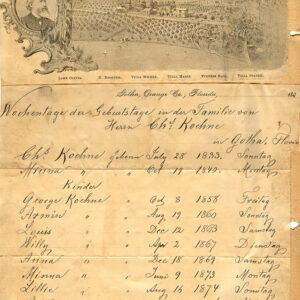 LAKE OLIVIA. H. KOEHNE. VILLA MINNIE. VILLA MARIE.
Gotha, Orange Co., Florida, 189
Wochentage der Geburtstage in der Familie von
Herrn Chs. Koehne
in Gotha, Florida
Chs. Koehne geboren July 28 1833. Sonntag
Minna " Oct 19 1840. Montag
Kinder
George Koehne " Oct 8 1858 Freitag
Armin " Aug 19 1860 Sonntag
Louis " Dec 12 1863 Samstag
Willy " Apr 2 1867 Dienstag
Anna " Dec 18 1869 Samstag
Minna " Juni 9 1873 Montag
Lillie " Aug 16 1874 Sonntag